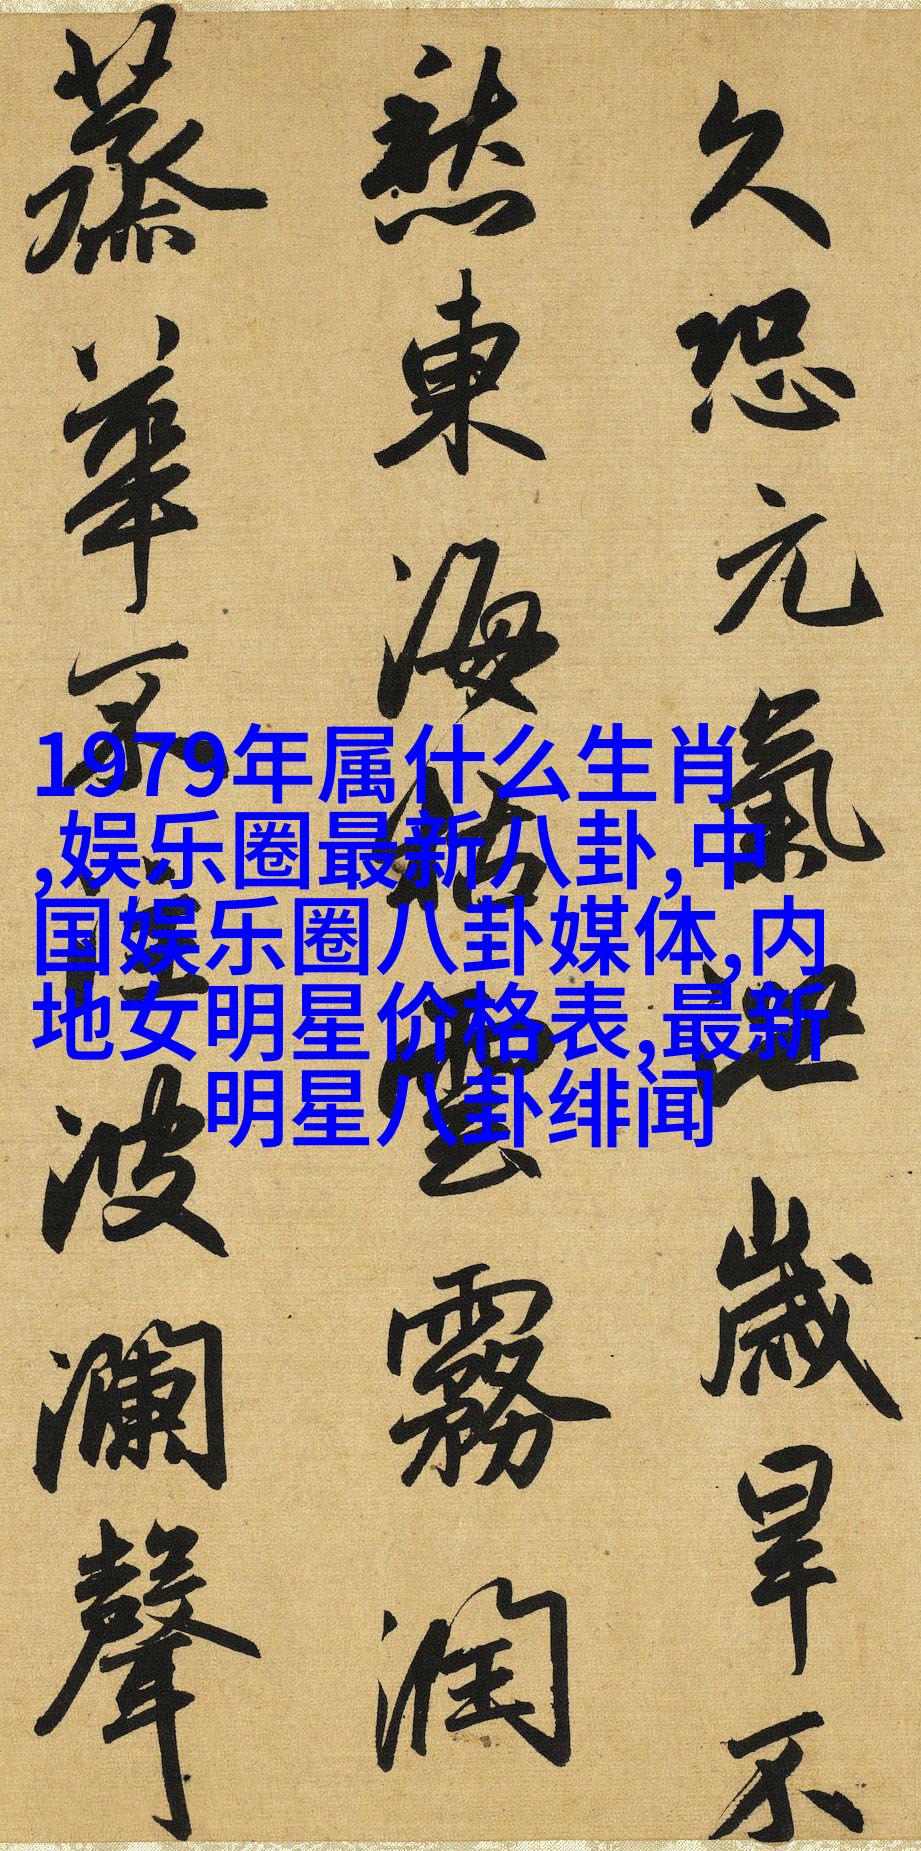 久恐元氣泄歲旱不
愁東海枯雲霧潤
蒸華不注波瀾聲
1979年属什么生肖
,娱乐圈最新八卦,中
国娱乐圈八卦媒体,内
地女明星价格表,最新
明星八卦绯闻